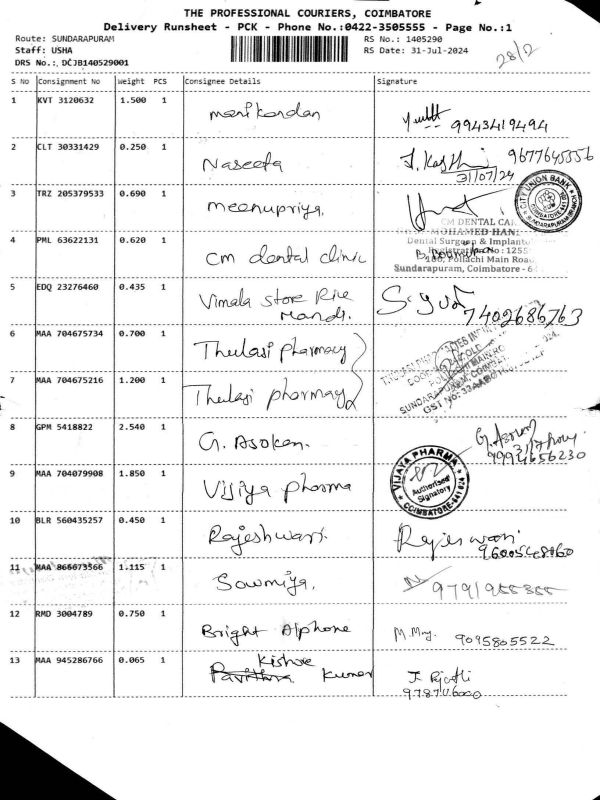 THE PROFESSIONAL COURIERS, COIMBATORE
Delivery Runsheet - PCK - Phone No.:0422-3505555 - Page No.:1
Route: SUNDARAPURAM RS No.: 1405290
Staff: USHA RS Date: 31-Jul-2024
DRS No.: DCJB140529001
28/2
S No Consignment No Weight PCS Consignee Details Signature
1 KVT 3120632 1.500 1 manikandan 9943419494
2 CLT 30331429 0.250 1 Naseefa 9677645556
31/07/24
3 TRZ 205379533 0.690 1 meenupriya.
CITY UNION BANK
COIMBATORE
CM DENTAL
MOHAMED
4 PML 63622131 0.620 1 cm dental clinic
Dental Surgeon & Implanto
Registration No: 1255
Pollachi Main Road
Sundarapuram, Coimbatore - 6
5 EDQ 23276460 0.435 1 Vimala Store Rice
Mandi. 7402686763
6 MAA 704675734 0.700 1 Thulasi pharmacy
7 MAA 704675216 1.200 1 Thulasi pharmacy
8 GPM 5418822 2.540 1 G. Asokan. 9994656230
9 MAA 704079908 1.850 1 Vijiya pharma
VIJAYA PHARMA
Authorised
Signatory
COIMBATORE-641 024
10 BLR 560435257 0.450 1 Rajeshwari. Rajeswari
11 MAA 866673566 1.115 1 Sowmiya.
12 RMD 3004789 0.750 1 Bright Alphone 9095805522
13 MAA 945286766 0.065 1 Kishore
Pavithra Kumar